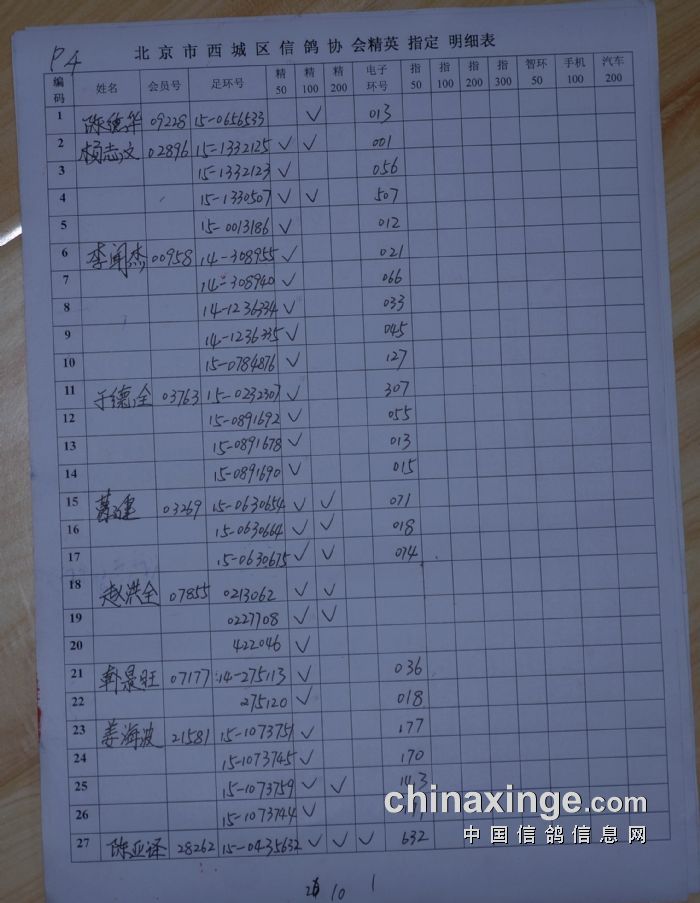 P4
北京市西城区信鸽协会精英 指定 明细表
编码 姓名 会员号 足环号 精50 精100 精200 电子环号 指50 指100 指200 指300 智环50 手机100 汽车200
1 陈德华 09228 15-0656533 ✓ 013
2 杨志文 02896 15-1332125 ✓ ✓ 001
3 15-1332123 ✓ 056
4 15-1330507 ✓ ✓ 507
5 15-0013186 ✓ 012
6 李闻杰 00958 14-308955 ✓ 021
7 14-308940 ✓ 066
8 14-1236334 ✓ 033
9 14-1236335 ✓ 045
10 15-0784876 ✓ 127
11 于德全 03763 15-0232307 ✓ 307
12 15-0891692 ✓ 055
13 15-0891678 ✓ 013
14 15-0891690 ✓ 015
15 03269 15-0630654 ✓ ✓ 071
16 15-0630664 ✓ ✓ 018
17 15-0630675 ✓ ✓ 074
18 赵洪全 07855 0213062 ✓ ✓
19 0227708 ✓ ✓
20 422046 ✓
21 韩景旺 07177 14-275113 ✓ 036
22 275120 ✓ 018
23 姜海波 21581 15-1073751 ✓ 177
24 15-1073745 ✓ 170
25 15-1073759 ✓ ✓
26 15-1073744 ✓
27 陈亚译 28262 15-0435632 ✓ ✓ ✓ 632
10 1
chinaxinge.com
中国信鸽信息网